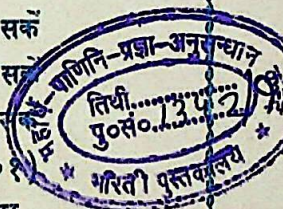 सकें
पाणिनि-प्रज्ञा-अनुसन्धान
तिथी..............
पु०सं०.1342
भारती पुस्तकालय